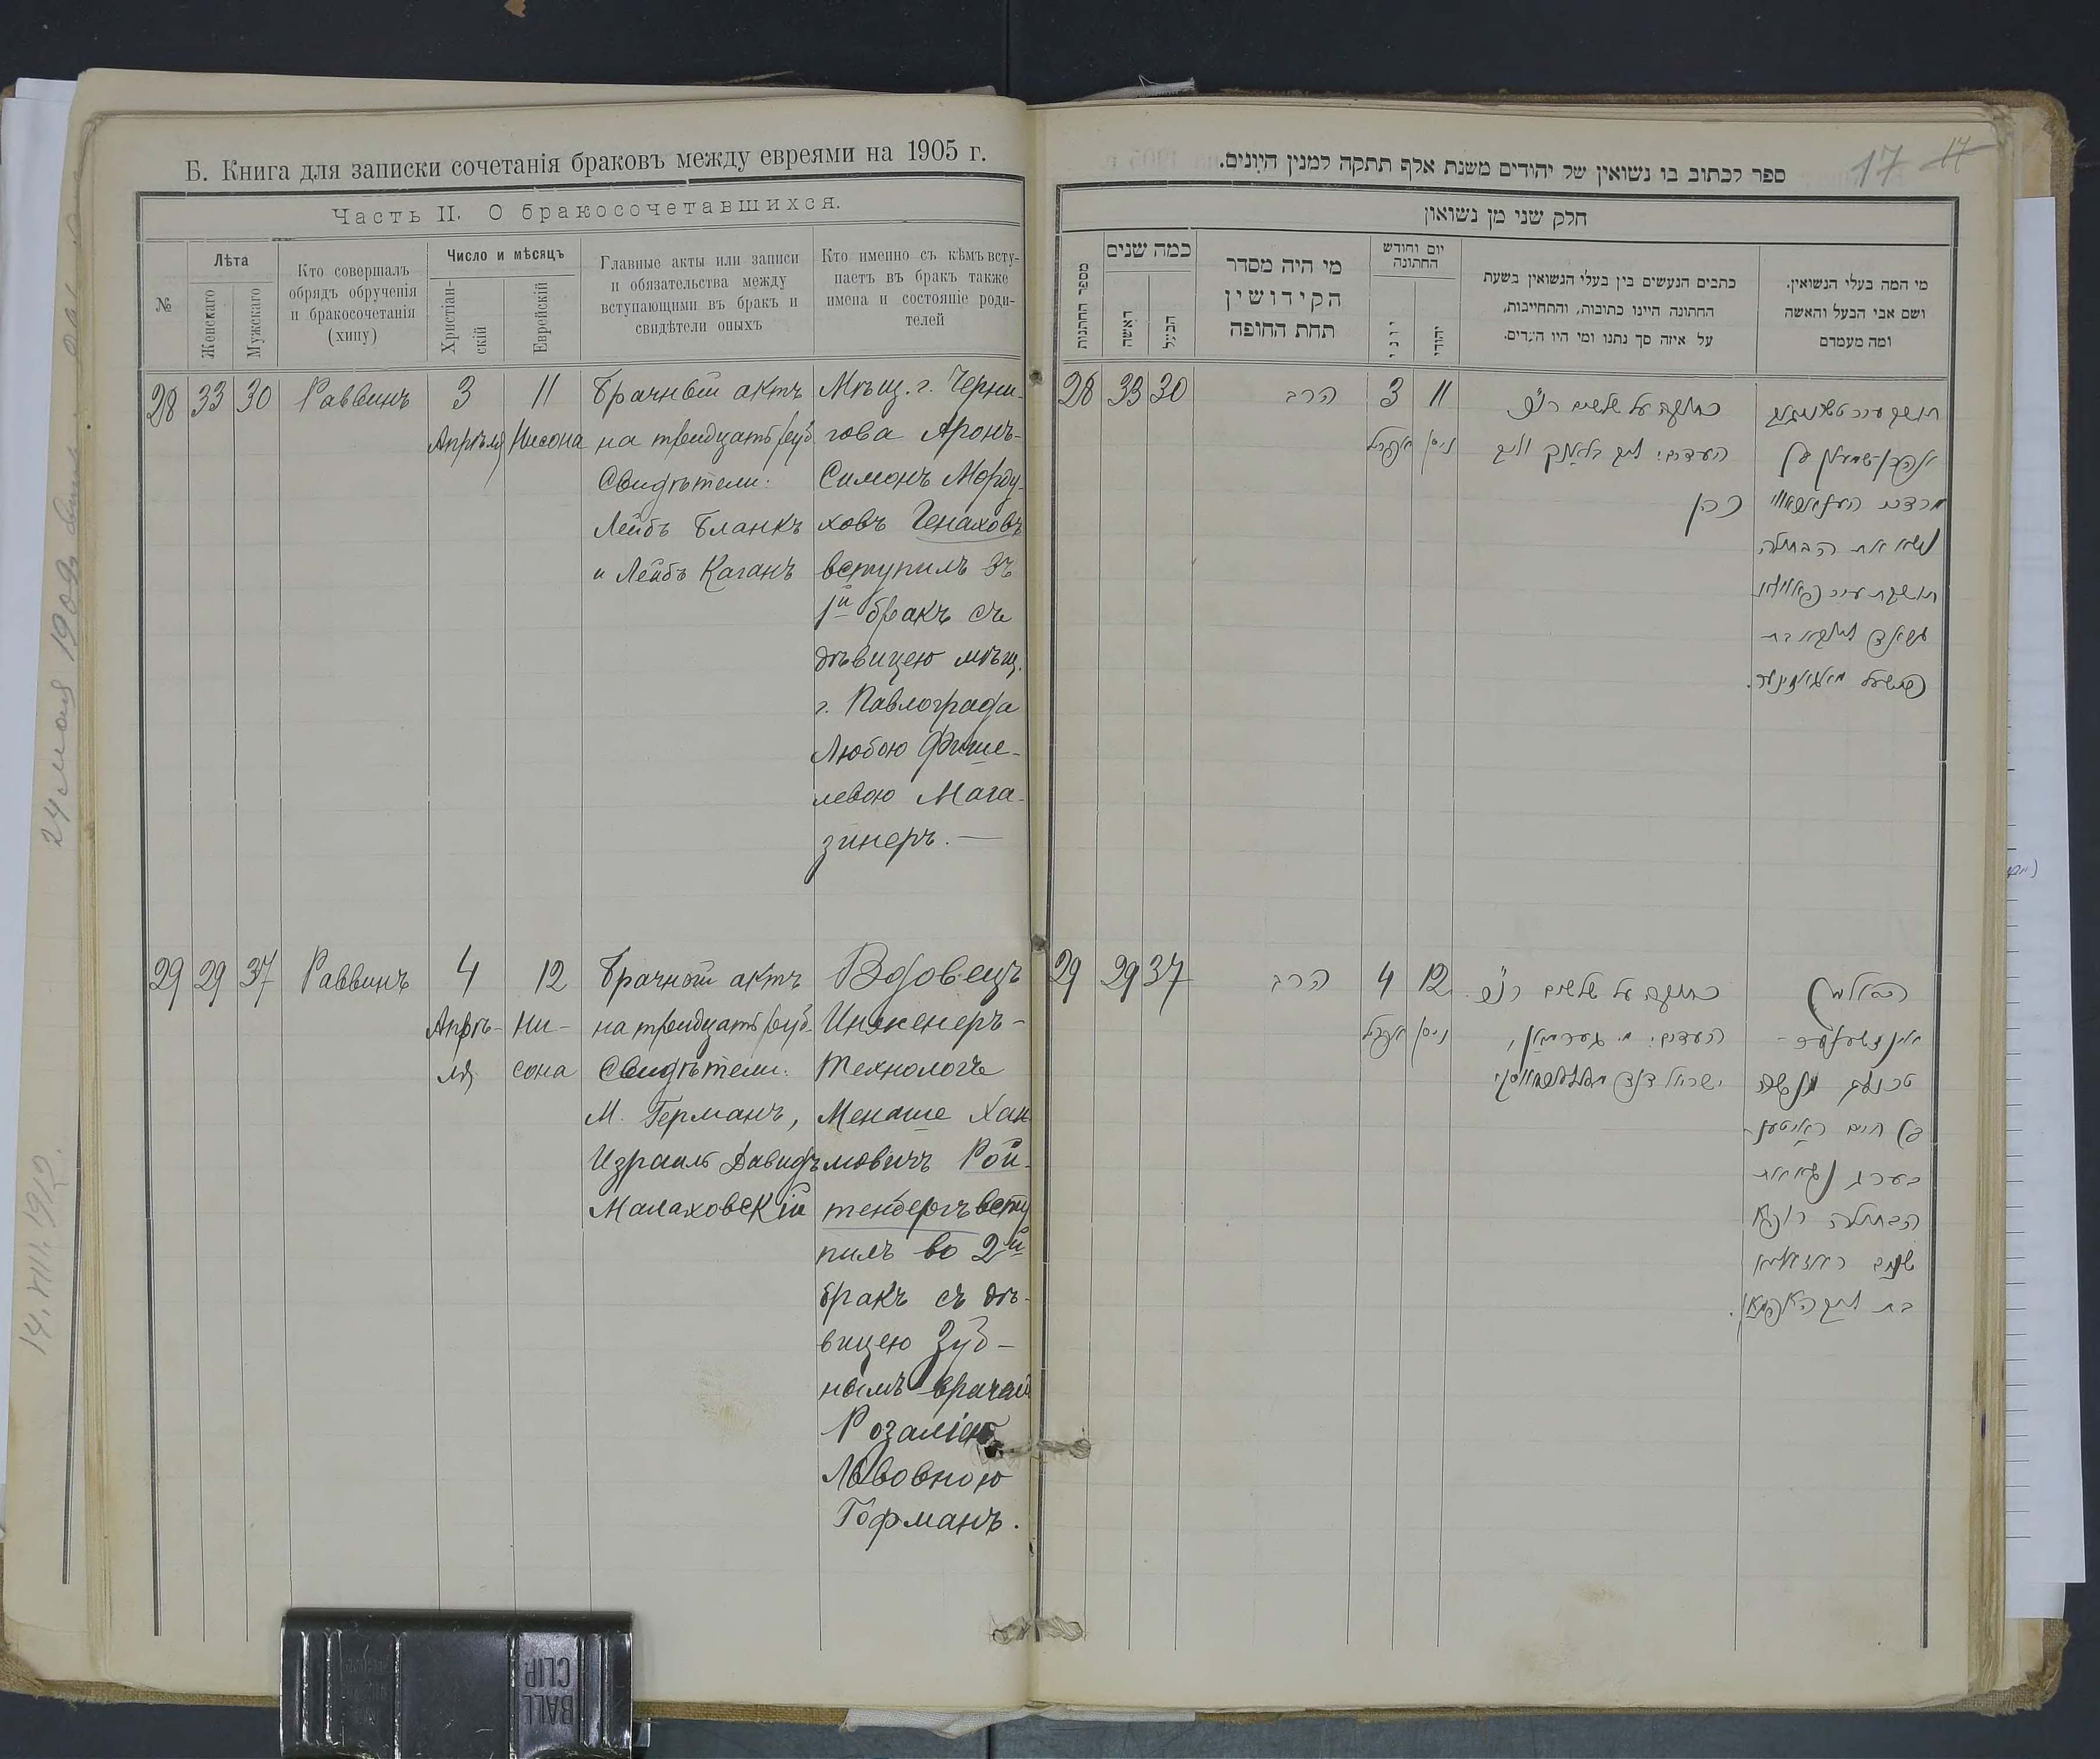 Б. Книга для записки сочетанія браковъ между евреями на 1905 г.
Часть II. О бракосочетавшихся.
№
Лѣта
Женскаго
Мужскаго
Кто совершалъ
обрядъ обрученія
и бракосочетанія
(хипу)
Число и мѣсяцъ
Христіан-
скій
Еврейскій
Главные акты или записи
и обязательства между
вступающими въ бракъ и
свидѣтели оныхъ
Кто именно съ кѣмъ всту-
паетъ въ бракъ также
имена и состояніе роди-
телей
28 33 30 Раввинъ
3
Апрѣля
11
Нисона
Брачный актъ
на тридцать руб.
Свидѣтели:
Лейбъ Бланкъ
и Лейбъ Каганъ
Мѣщ. г. Черни-
гова Аронъ-
Симонъ Морду-
ховъ Генаховъ
вступилъ въ
1й бракъ съ
дѣвицею мѣщ.
г. Павлограда
Любою Фише-
левою Мага-
зинеръ. —
29 29 37 Раввинъ
4
Апрѣ-
ля
12
Ни-
сона
Брачный актъ
на тридцать руб.
Свидѣтели:
М. Германъ,
Израиль Давидъ
Малаховскій
Вдовецъ
Инженеръ-
Технологъ
Менаше Хаи-
мовичъ Рой-
тенбергъ всту
пилъ во 2й
бракъ съ дѣ-
вицею Зуб-
нымъ врачемъ
Розаліею
Львовною
Гофманъ.
ספר לכתוב בו נשואין של יהודים משנת אלף תתקה למנין היונים.
17 17
חלק שני מן נשואון
מספר החתונות
כמה שנים
האשה
הבעל
מי היה מסדר
הקידושין
תחת החופה
יום וחודש
החתונה
יוני
יהודי
כתבים הנעשים בין בעלי הנשואין בשעת
החתונה היינו כתובות, והתחייבות,
על איזה סך נתנו ומי היו העדים.
מי המה בעלי הנשואין.
ושם אבי הבעל והאשה
ומה מעמדם
28 33 30 הרב
3
אפריל
11
ניסן
כתובה על שלשים רו"כ
העדים: ליב בלאנק וליב
כהן
29 29 37 הרב
4
אפריל
12
ניסן
כתובה על שלשים רו"כ
העדים: מ. גערמאן,
ישראל דוד מאלאחאווסקי
האלמן
אינזשענער-
טכנולוג מנשה
בן חיים ראיטען-
בערג נשא את
הבתולה רופא
שנים ראזאליא
בת ליב האפמאן.
24 мая 1909
14.VIII.1912.
BALL
CLIP